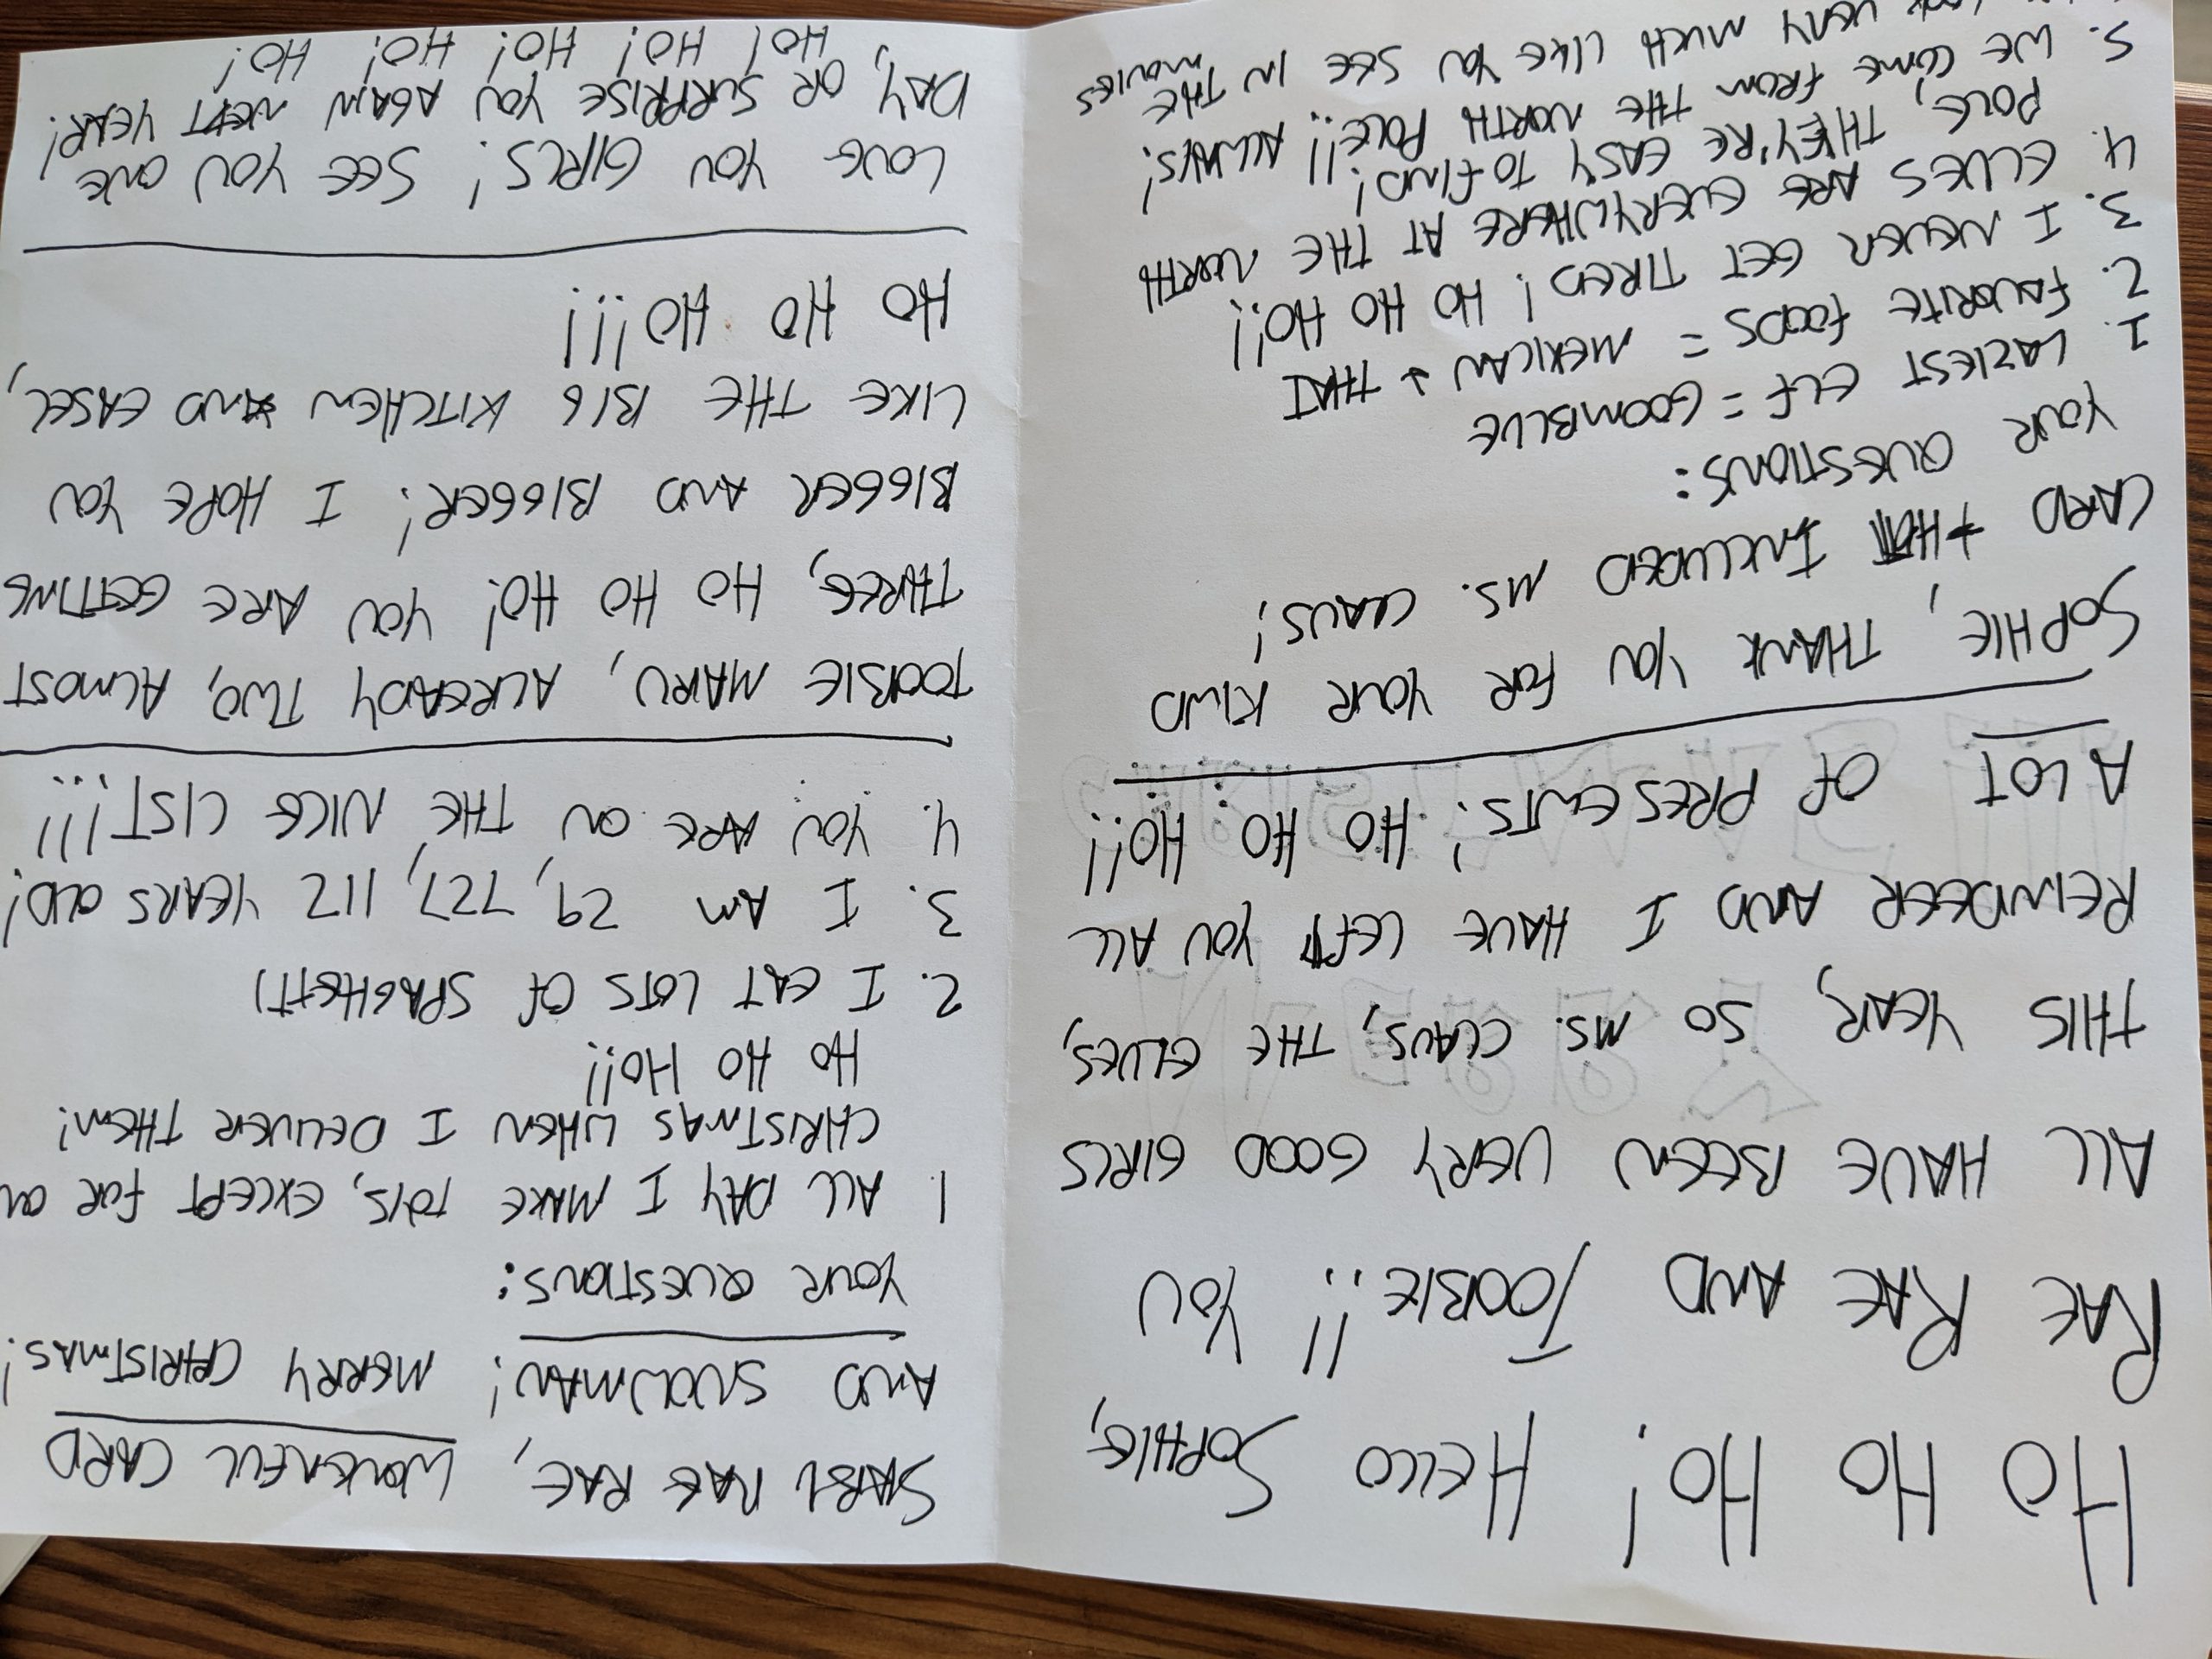 HO HO HO! HELLO SOPHIE,
RAE RAE AND TOOBIE!! YOU
ALL HAVE BEEN VERY GOOD GIRLS
THIS YEAR, SO MS. CLAUS, THE ELVES,
REINDEER AND I HAVE LEFT YOU ALL
A LOT OF PRESENTS! HO HO HO!!
SOPHIE, THANK YOU FOR YOUR KIND
CARD INCLUDED MS. CLAUS!
YOUR QUESTIONS:
1. LAZIEST ELF = GOOMBLUE
2. FAVORITE FOODS = MEXICAN + THAI
3. I NEVER GET TIRED! HO HO HO!!
4. ELVES ARE EVERYWHERE AT THE NORTH
POLE, THEY'RE EASY TO FIND!
5. WE COME FROM THE NORTH POLE!! ALWAYS!
VERY MUCH LIKE YOU SEE IN THE
MOVIES
RAE RAE, CARD
AND SNOWMAN! MERRY CHRISTMAS!
YOUR QUESTIONS:
1 ALL DAY I MAKE TOYS, EXCEPT FOR ON
CHRISTMAS WHEN I DELIVER THEM!
HO HO HO!!
2. I EAT LOTS OF SPAGHETTI
3. I AM 29,727,112 YEARS OLD!
4. YOU ARE ON THE NICE LIST!!!
TOOBIE MARU, ALREADY TWO, ALMOST
THREE, HO HO HO! YOU ARE GETTING
BIGGER AND BIGGER! I HOPE YOU
LIKE THE BIG KITCHEN AND EASEL,
HO HO HO!!!
LOVE YOU GIRLS! SEE YOU ONE
DAY, OR SURPRISE YOU AGAIN NEXT YEAR!
HO! HO! HO! HO! HO!